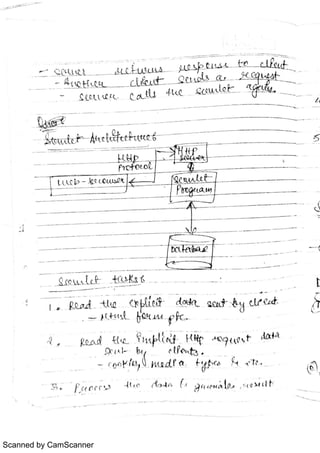 - server returns response to client
- Another client sends a request
- server calls the servlet again.
Servlet Architecture :
HTTP
Protocol
HTTP
Server
Web-browser
Servlet
Program
Database
Servlet tasks :
1. Read the explicit data sent by client
- Html form etc.
2. Read the implicit Http request data
sent by clients.
- cookies, media types etc.
3. Process the data & generate result
Scanned by CamScanner